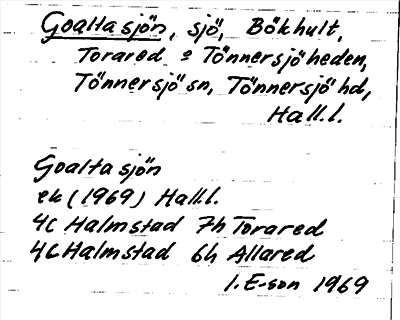 Goalta sjön, sjö, Bökhult,
Torared o Tönnersjöheden,
Tönnersjö sn, Tönnersjö hd,
Hall.l.
Goalta sjön
ek (1969) Hall.l.
4C Halmstad 7h Torared
4C Halmstad 6h Allared
I. E-son 1969